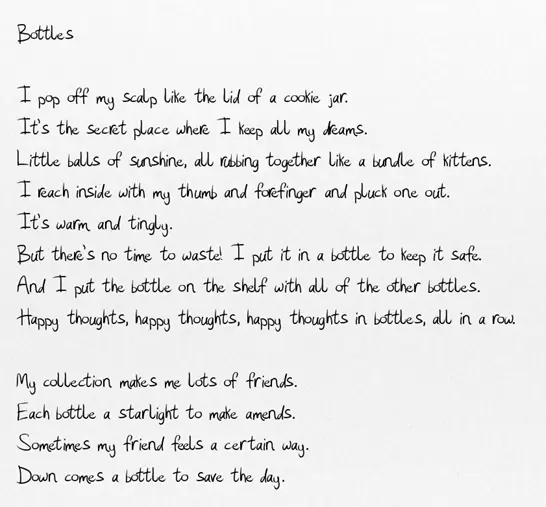 Bottles
I pop off my scalp like the lid of a cookie jar.
It's the secret place where I keep all my dreams.
Little balls of sunshine, all rubbing together like a bundle of kittens.
I reach inside with my thumb and forefinger and pluck one out.
It's warm and tingly.
But there's no time to waste! I put it in a bottle to keep it safe.
And I put the bottle on the shelf with all of the other bottles.
Happy thoughts, happy thoughts, happy thoughts in bottles, all in a row.
My collection makes me lots of friends.
Each bottle a starlight to make amends.
Sometimes my friend feels a certain way.
Down comes a bottle to save the day.